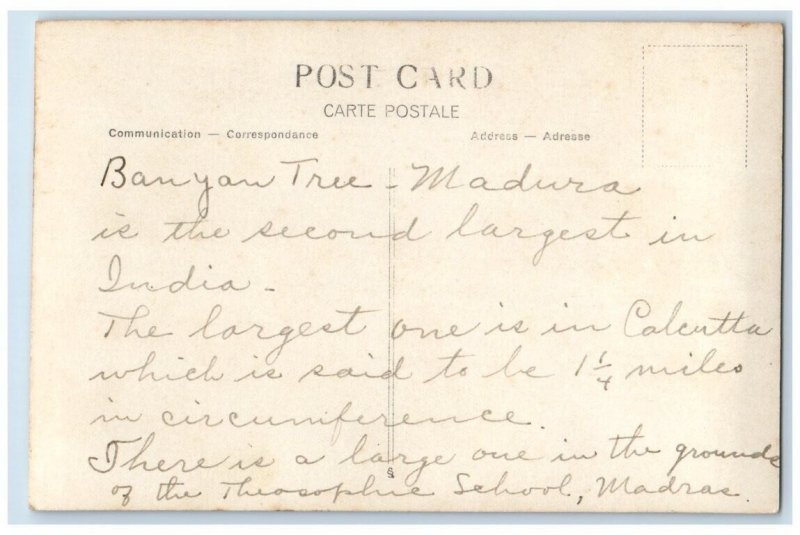 POST CARD
CARTE POSTALE
Communication — Correspondance Address — Adresse
Banyan Tree - Madura
is the second largest in
India -
The largest one is in Calcutta
which is said to be 1 1/4 miles
in circumference.
There is a large one in the grounds
of the Theosophic School, Madras.